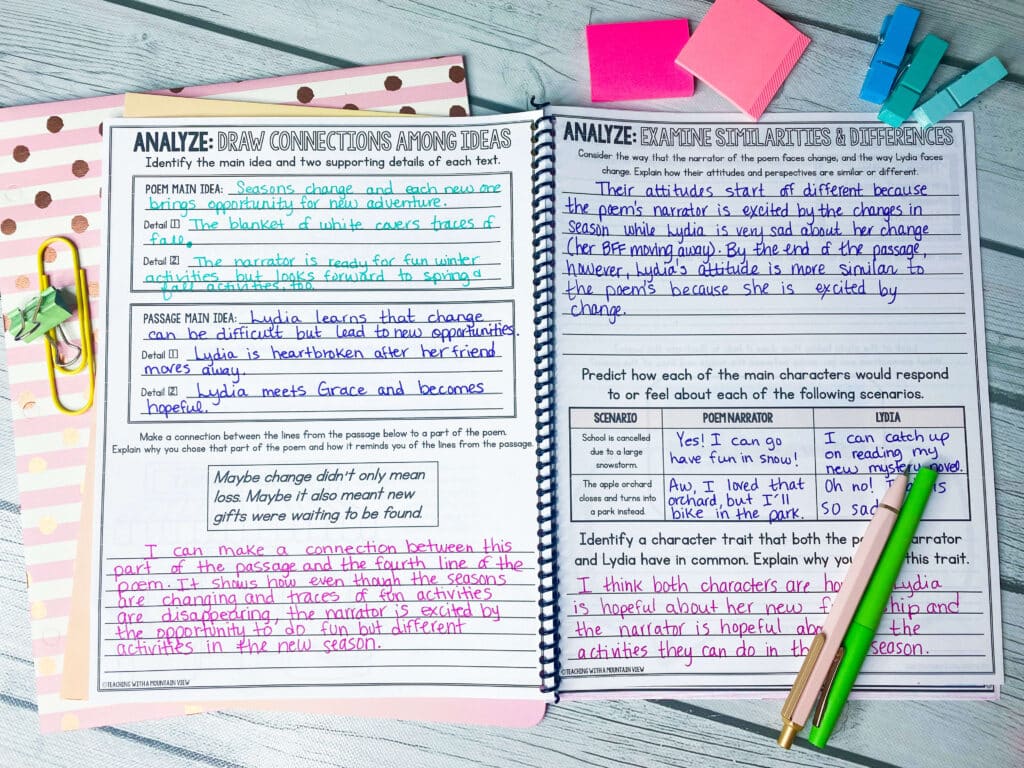 ANALYZE: DRAW CONNECTIONS AMONG IDEAS
Identify the main idea and two supporting details of each text.
POEM MAIN IDEA: Seasons change and each new one
brings opportunity for new adventure.
Detail 1 The blanket of white covers traces of
fall.
Detail 2 The narrator is ready for fun winter
activities but looks forward to spring &
fall activities, too.
PASSAGE MAIN IDEA: Lydia learns that change
can be difficult but lead to new opportunities.
Detail 1 Lydia is heartbroken after her friend
moves away.
Detail 2 Lydia meets Grace and becomes
hopeful.
Make a connection between the lines from the passage below to a part of the poem.
Explain why you chose that part of the poem and how it reminds you of the lines from the passage.
Maybe change didn't only mean
loss. Maybe it also meant new
gifts were waiting to be found.
I can make a connection between this
part of the passage and the fourth line of the
poem. It shows how even though the seasons
are changing and traces of fun activities
are disappearing, the narrator is excited by
the opportunity to do fun but different
activities in the new season.
©TEACHING WITH A MOUNTAIN VIEW
ANALYZE: EXAMINE SIMILARITIES & DIFFERENCES
Consider the way that the narrator of the poem faces change, and the way Lydia faces
change. Explain how their attitudes and perspectives are similar or different.
Their attitudes start off different because
the poem's narrator is excited by the changes in
season while Lydia is very sad about her change
(her BFF moving away). By the end of the passage,
however, Lydia's attitude is more similar to
the poem's because she is excited by
change.
Predict how each of the main characters would respond
to or feel about each of the following scenarios.
SCENARIO POEM NARRATOR LYDIA
School is cancelled
due to a large
snowstorm.
Yes! I can go
have fun in snow!
I can catch up
on reading my
new mystery novel.
The apple orchard
closes and turns into
a park instead.
Aw, I loved that
orchard, but I'll
bike in the park.
Oh no! is
so sad
Identify a character trait that both the narrator
and Lydia have in common. Explain why you this trait.
I think both characters are Lydia
is hopeful about her new and
the narrator is hopeful the
activities they can do in season.
©TEACHING WITH A MOUNTAIN VIEW